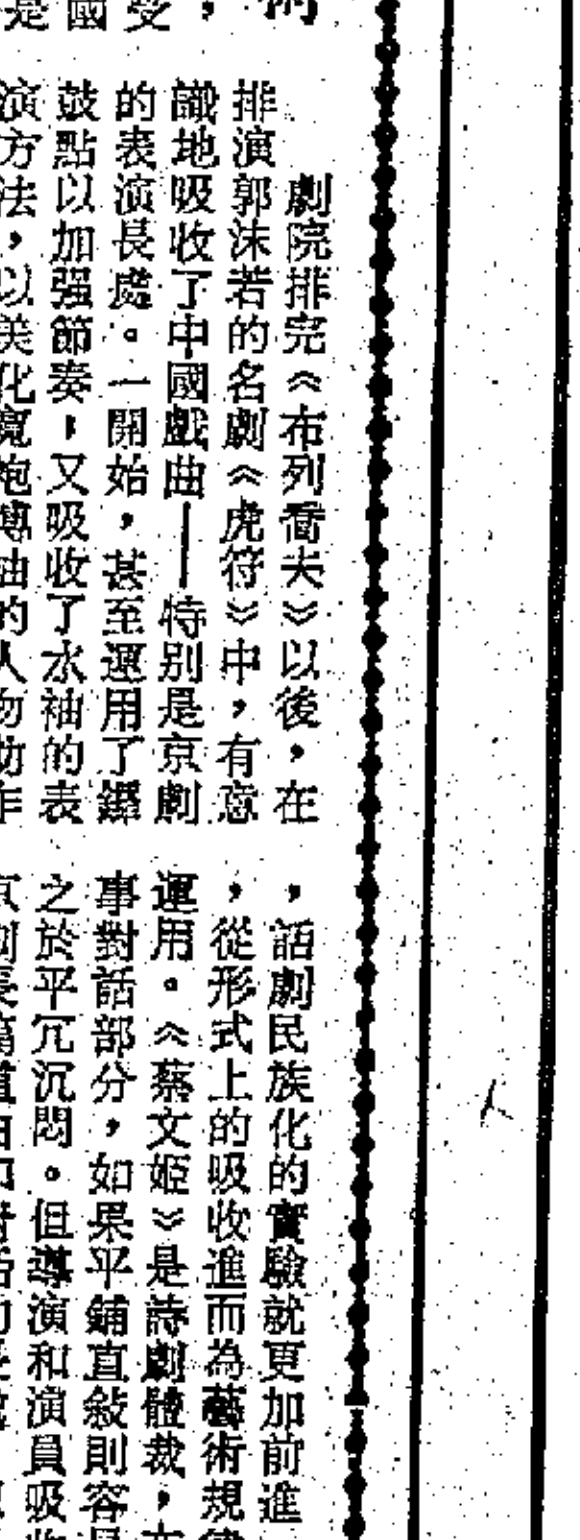 術
，受
國
是
劇院排完《布列喬夫》以後，在
排演郭沫若的名劇《虎符》中，有意
識地吸收了中國戲曲——特别是京劇
的表演長處。一開始，甚至運用了鑼
鼓點以加强節奏，又吸收了水袖的表
演方法，以美化寬袍博袖的人物動作
，話劇民族化的實驗就更加前進
，從形式上的吸收進而為藝術規律
運用。《蔡文姬》是詩劇體裁，在
事對話部分，如果平鋪直敍則容易
之於平冗沉悶。但導演和演員吸收
京劇長篇道白和對話的長處